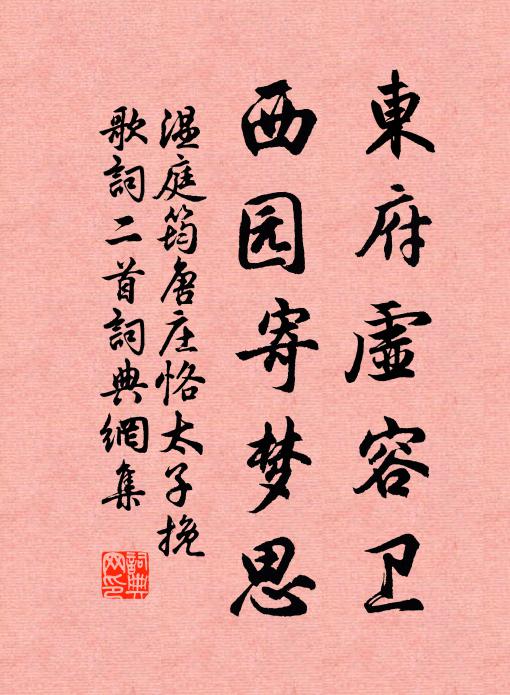 東府虛容卫
西园寄梦思
温庭筠唐庄恪太子挽
歌詞二首詞典網集
詞典网印